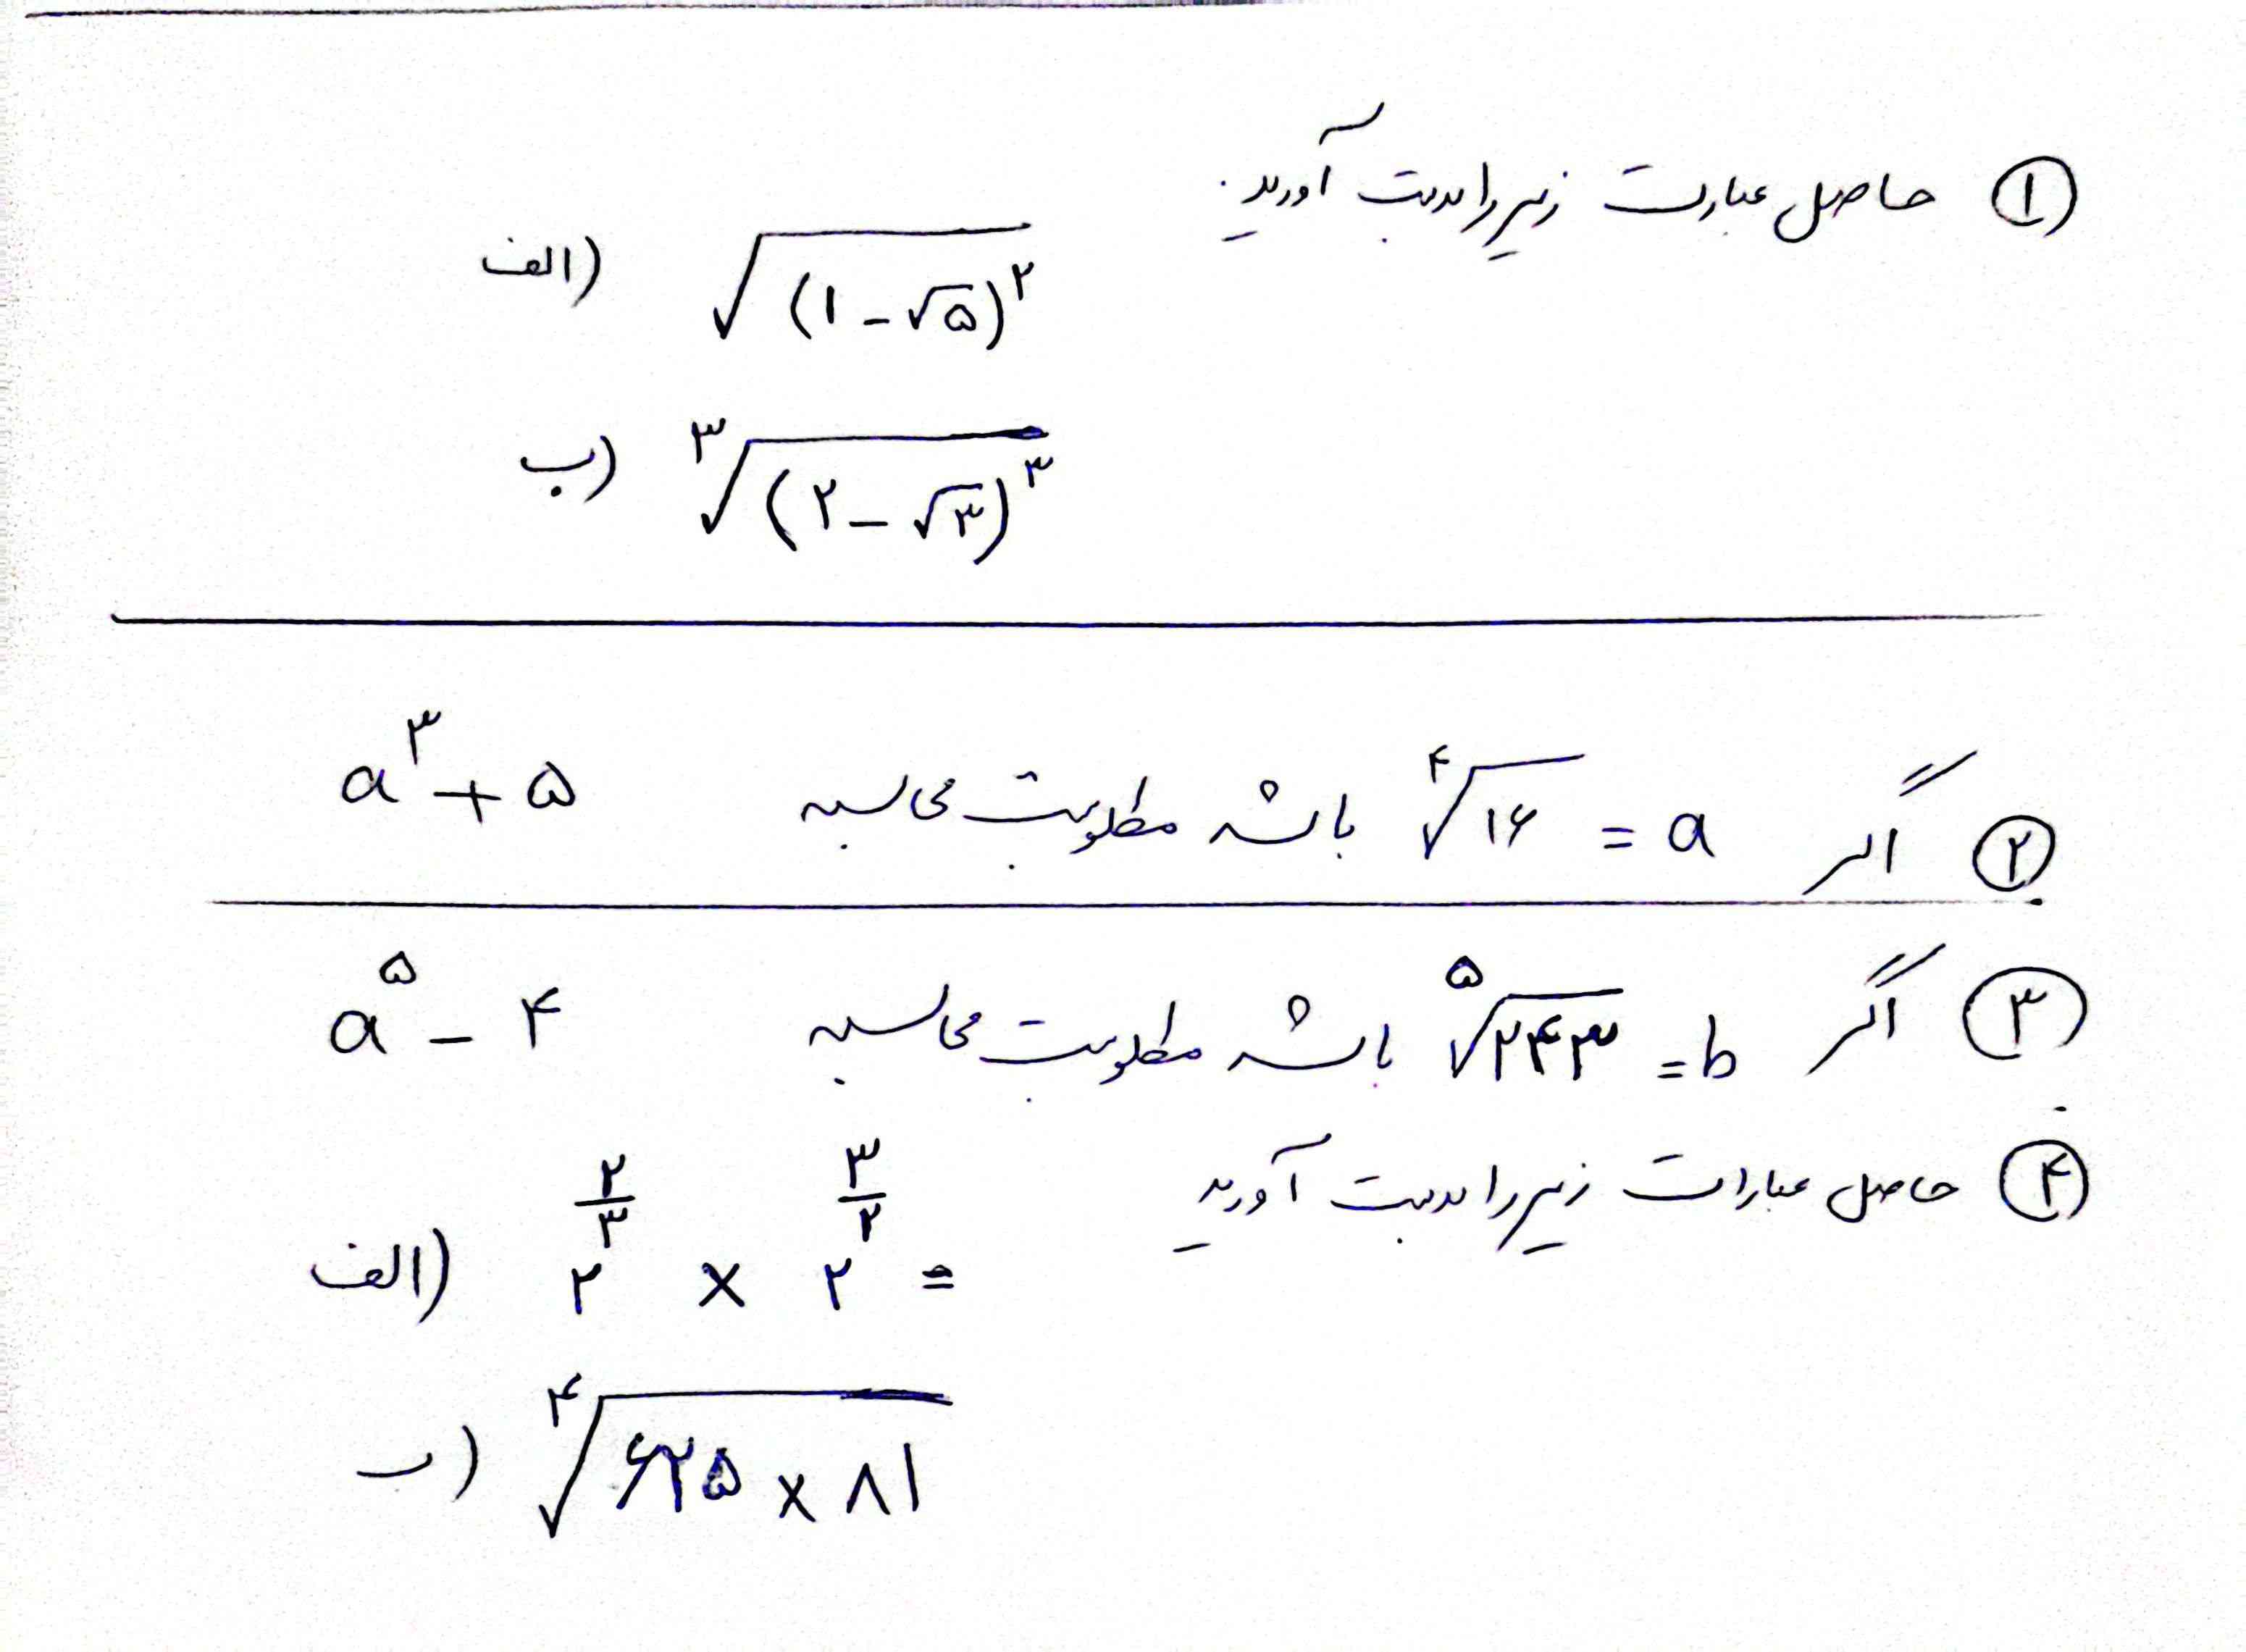 ① حاصل عبارت زیر را بدست آورید.
الف) √(۱-√۵)^۲
ب) ۳√(۲-√۳)^۳
② اگر a = ۴√۱۶ باشد مطلوبست محاسبه a^۳+۵
③ اگر b = ۵√۲۴۳ باشد مطلوبست محاسبه a^۵-۴
④ حاصل عبارات زیر را بدست آورید
الف) ۲^(۲/۳) × ۲^(۳/۲) =
ب) ۴√۶۲۵×۸۱